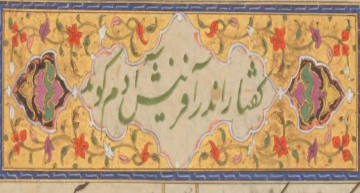 گفتار اندر آفرینش آدم گوید